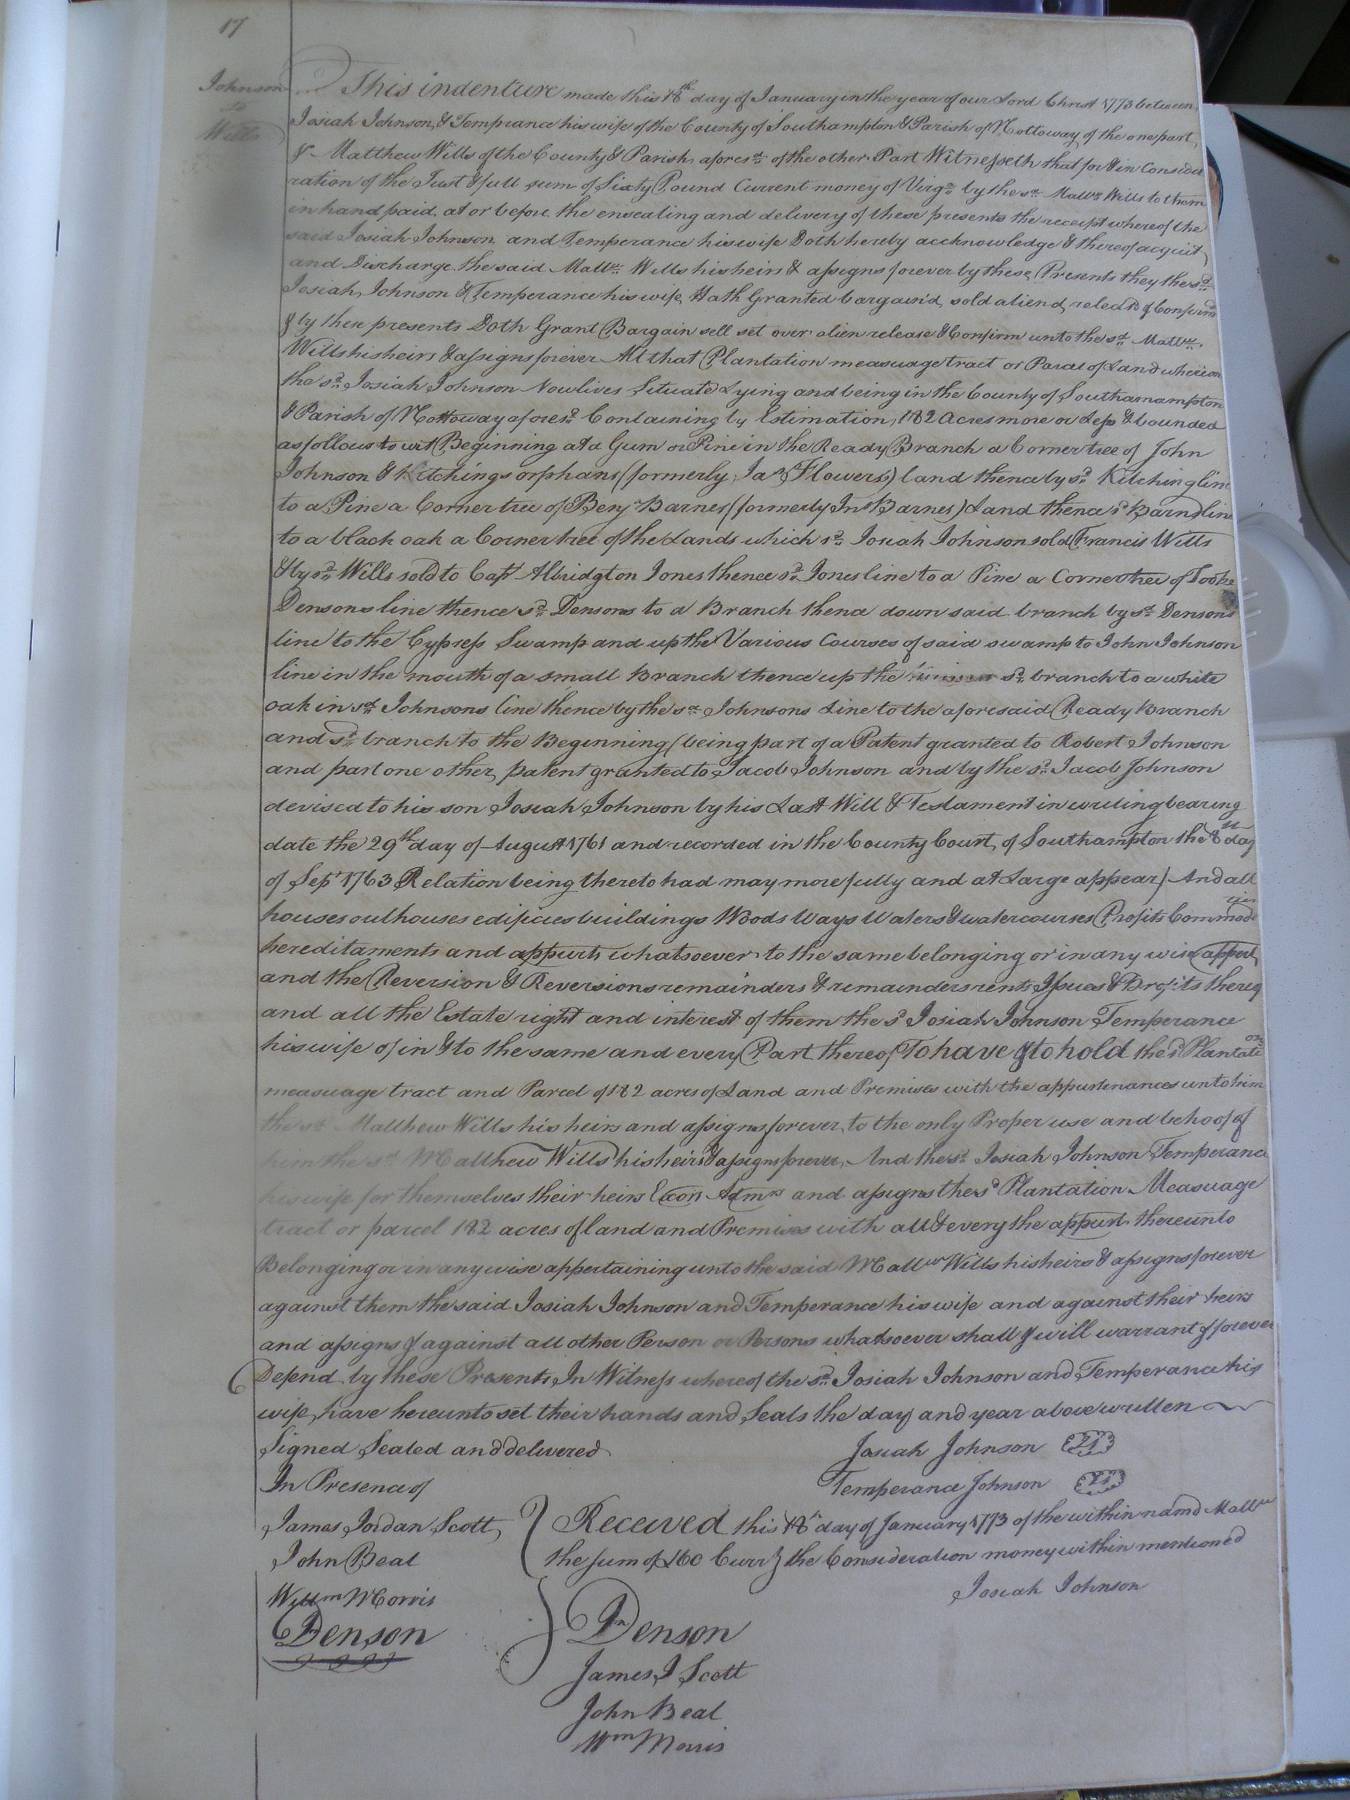 17
Johnson
to
Wills
This indenture made this 18th day of January in the year of our Lord Christ 1773 between
Josiah Johnson, & Temprance his wife of the County of Southampton & Parish of Nottoway of the one part,
& Matthew Wills of the County & Parish afores.d of the other Part Witnesseth that for & in Conside
ration of the Just & full sum of Sixty Pound Current money of Virg.a by the s.d Matt.w Wills to them
in hand paid at or before the ensealing and delivery of these presents the receipt whereof the
said Josiah Johnson and Temperance his wife Doth hereby accknowledge & thereof acquit
and Discharge the said Matt.w Wills his heirs & assigns forever by these Presents they the s.d
Josiah Johnson & Temperance his wife Hath Granted bargain'd sold aliend releas'd & Confirm'd
& by these presents Doth Grant Bargain sell set over alien release & Confirm unto the s.d Matt.w
Wills his heirs & assigns forever All that Plantation measuage tract or Parcel of Land whereon
the s.d Josiah Johnson Now lives Situate Lying and being in the County of Southamampton
& Parish of Nottoway afores.d Containing by Estimation, 182 Acres more or Less & bounded
as follows to wit Beginning at a Gum or Pine in the Ready Branch a Corner tree of John
Johnson & Kitchings orphans (formerly Ja.s Flowers) land thence by s.d Kitching line
to a Pine a Corner tree of Benj.n Barnes (formerly Jn.o Barnes) Land thence s.d Barns line
to a black oak a Corner tree of the Lands which s.d Josiah Johnson sold Francis Wills
& by s.d Wills sold to Capt Albridgton Jones thence s.d Jones line to a Pine a Corner tree of Tooke
Densons line thence s.d Densons to a Branch thence down said branch by s.d Densons
line to the Cypress Swamp and up the Various Courses of said swamp to John Johnson
line in the mouth of a small Branch thence up the s.d branch to a white
oak in s.d Johnsons line thence by the s.d Johnsons Line to the aforesaid Ready Branch
and s.d branch to the Beginning (being part of a Patent granted to Robert Johnson
and part one other patent granted to Jacob Johnson and by the s.d Jacob Johnson
devised to his son Josiah Johnson by his Last Will & Testament in writing bearing
date the 29th day of August 1761 and recorded in the County Court of Southampton the 8th day
of Sept 1763 Relation being thereto had may more fully and at Large appear) And all
houses outhouses edifices buildings Woods Ways Waters & watercourses Profits Commod
hereditaments and appurts whatsoever to the same belonging or in any wise appert
and the Reversion & Reversions remainders & remainders rents Issues & Profits thereof
and all the Estate right and interest of them the s.d Josiah Johnson Temperance
his wife of in & to the same and every Part thereof To have & to hold the s.d Plantation
measuage tract and Parcel of 182 acres of Land and Premises with the appurtenances unto him
the s.d Matthew Wills his heirs and assigns forever, to the only Proper use and behoof of
him the s.d Matthew Wills his heirs & assigns forever, And the s.d Josiah Johnson Temperance
his wife for themselves their heirs Exors Adm.rs and assigns the s.d Plantation Measuage
tract or parcel 182 acres of land and Premises with all & every the appurt thereunto
Belonging or in any wise appertaining unto the said Matt.w Wills his heirs & assigns forever
against them the said Josiah Johnson and Temperance his wife and against their heirs
and assigns & against all other Person or Persons whatsoever shall & will warrant & forever
Defend by these Presents, In Witness whereof the s.d Josiah Johnson and Temperance his
wife, have hereunto set their hands and Seals the day and year above written
Signed Sealed and delivered
In Presence of
Josiah Johnson
Temperance Johnson
James Jordan Scott,
John Beal
Will.m Morris
Jn Denson
Received this 18th day of January 1773 of the within namd Matt.w
the sum of £60 Curr.y the Consideration money within mentioned
Josiah Johnson
Jn Denson
James J Scott
John Beal
Wm Morris